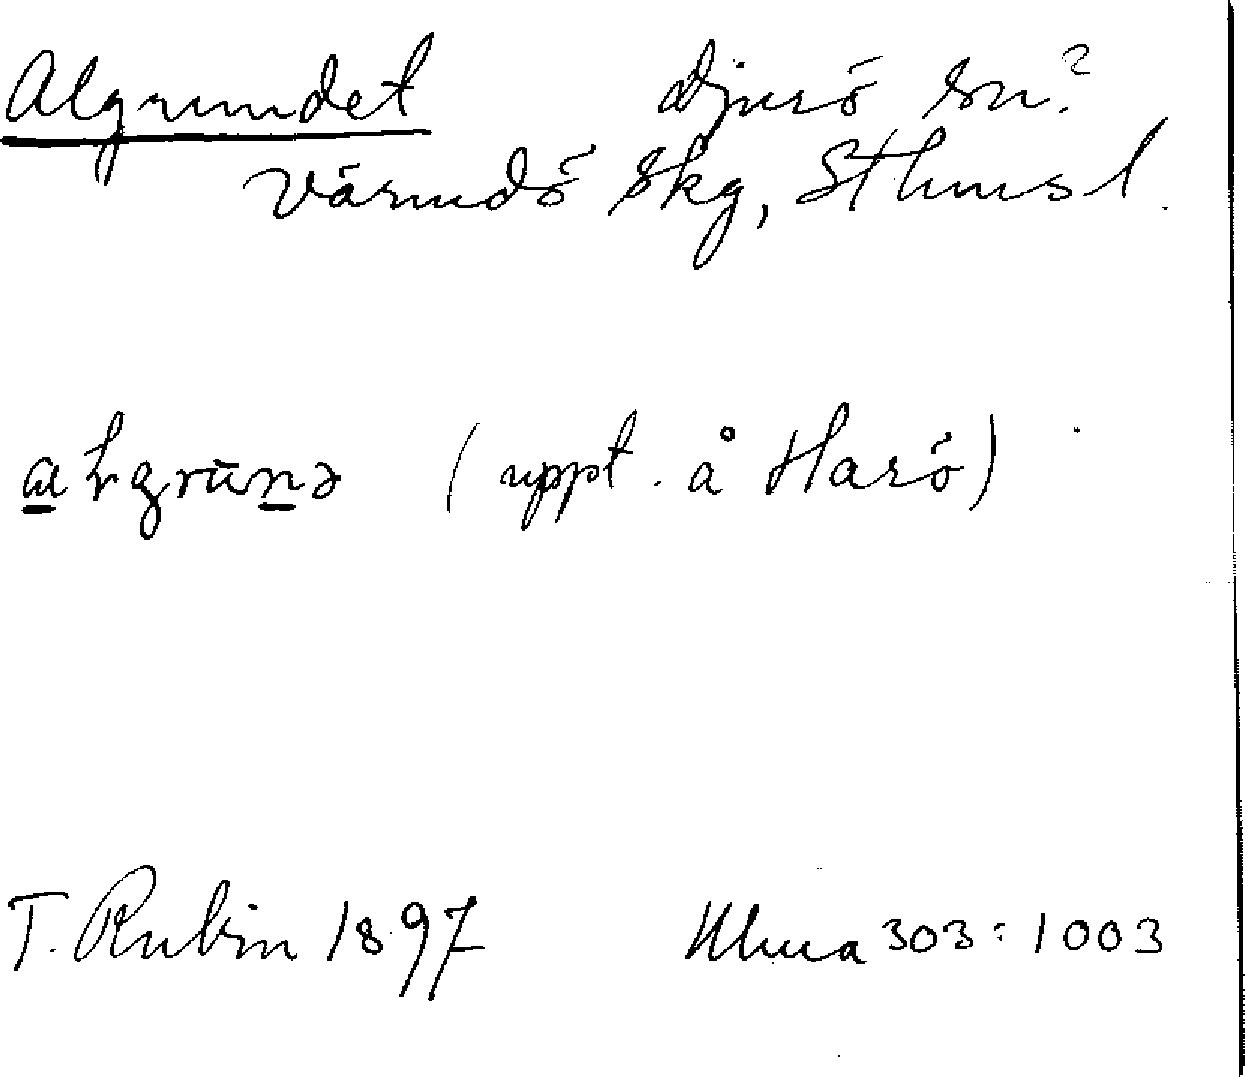 Algrundet Djurö sn?
Värmdö skg, Sthmsl.
(uppt. å Harö)
T. Rubin 1897 Ulma 303:1003